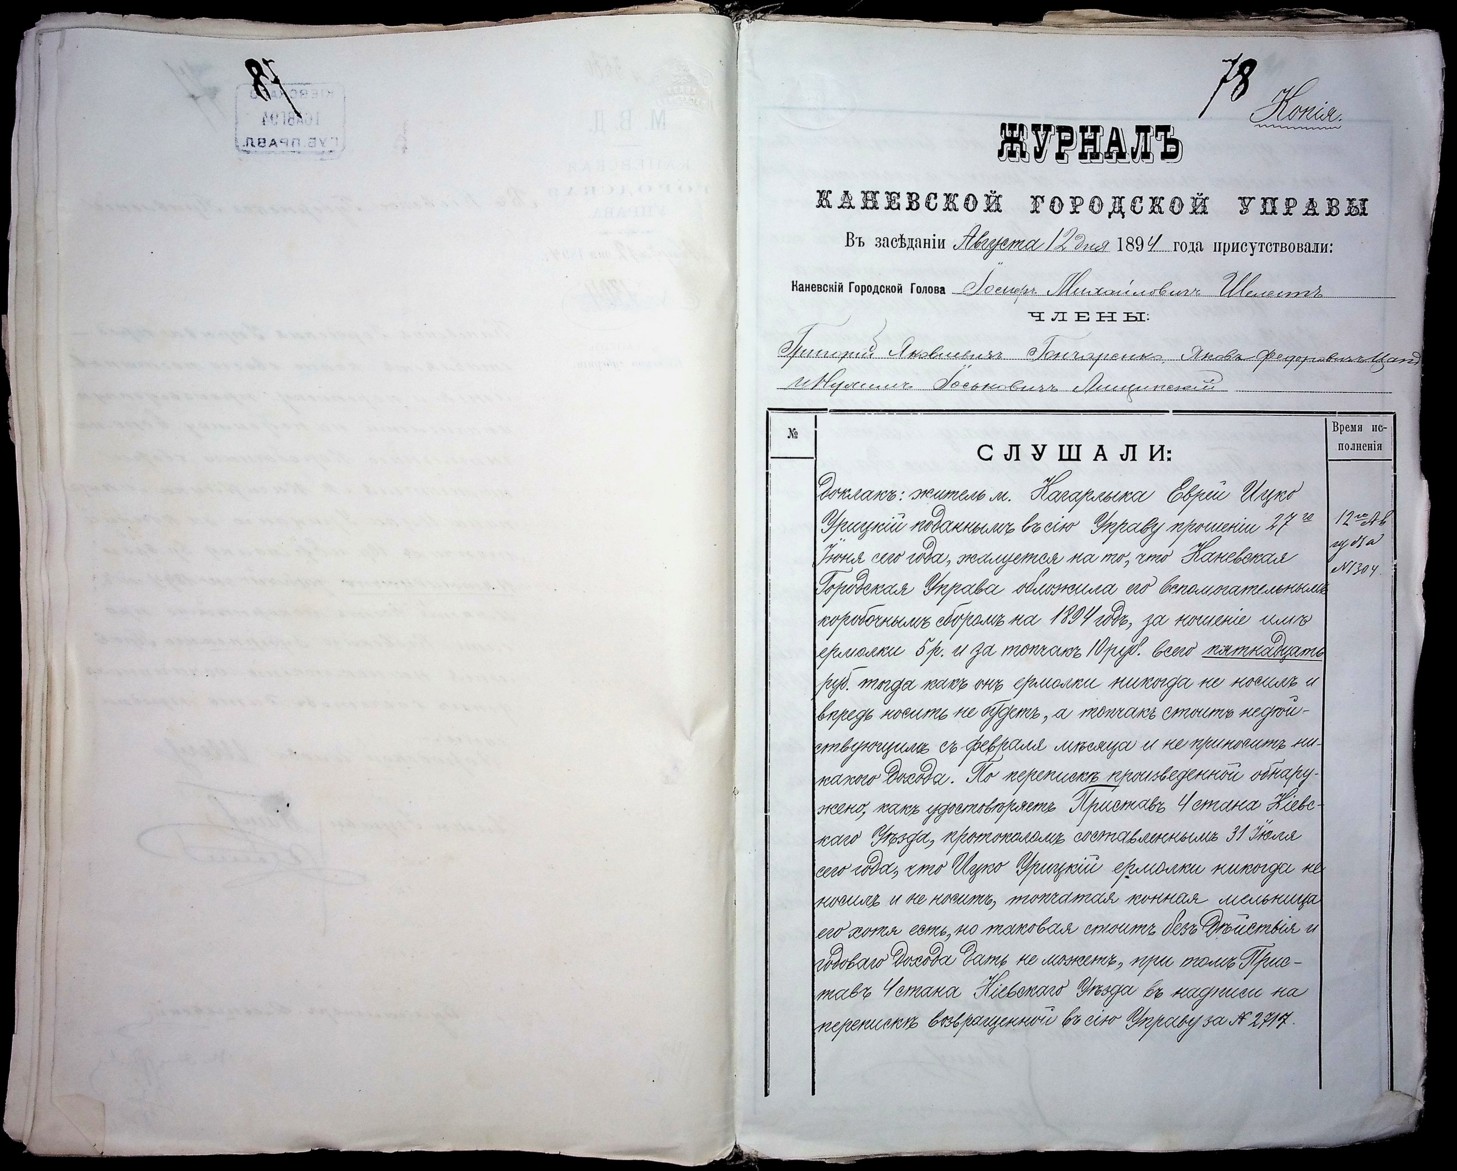 78
Копія.
ЖУРНАЛЪ
КАНЕВСКОЙ ГОРОДСКОЙ УПРАВЫ
Въ засѣданіи Августа 12 дня 1894 года присутствовали:
Каневскій Городской Голова Іосифъ Михайловичъ Шелестъ
ЧЛЕНЫ:
Григорій Яковлевичъ Гончаренко Яковъ Федоровичъ
и Іоськовичъ
№
СЛУШАЛИ:
Время исполненія
Докладъ: житель м. Кагарлыка Еврей Ицко
Урицкій поданнымъ въ сію Управу прошеніи 27го
Іюня сего года, жалуется на то, что Каневская
Городская Управа обложила его вспомогательнымъ
коробочнымъ сборомъ на 1894 годъ, за ношеніе имъ
ермолки 5 р. и за топчакъ 10 руб. всего пятнадцать
руб. тогда какъ онъ ермолки никогда не носилъ и
впредь носить не будетъ, а топчакъ стоитъ недѣй-
ствующимъ съ февраля мѣсяца и не приноситъ ни-
какого дохода. По перепискѣ произведенной обнару-
жено, какъ удостовѣряетъ Приставъ 4 стана Кіевс-
каго Уѣзда, протоколомъ составленнымъ 31 Іюля
сего года, что Ицко Урицкій ермолки никогда не
носилъ и не носитъ, топчатая конная мельница
его хотя есть, но таковая стоитъ безъ дѣйствія и
годоваго дохода дать не можетъ, при томъ Прис-
тавъ 4 стана Кіевскаго Уѣзда въ надписи на
перепискѣ возвращенной въ сію Управу за № 2717.
12го Ав
густа
№1304